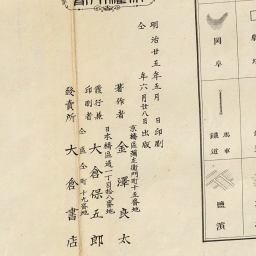 明治廿五年五月　日印刷
仝　年六月廿八日出版
京橋區彌左衛門町十五番地
著作者　金澤良太
日本橋區通一丁目拾八番地
印刷者　發行兼　大倉保五郎
仝區仝町十九番地
發賣所　大倉書店
岡阜
馬車鐵道
鹽濱